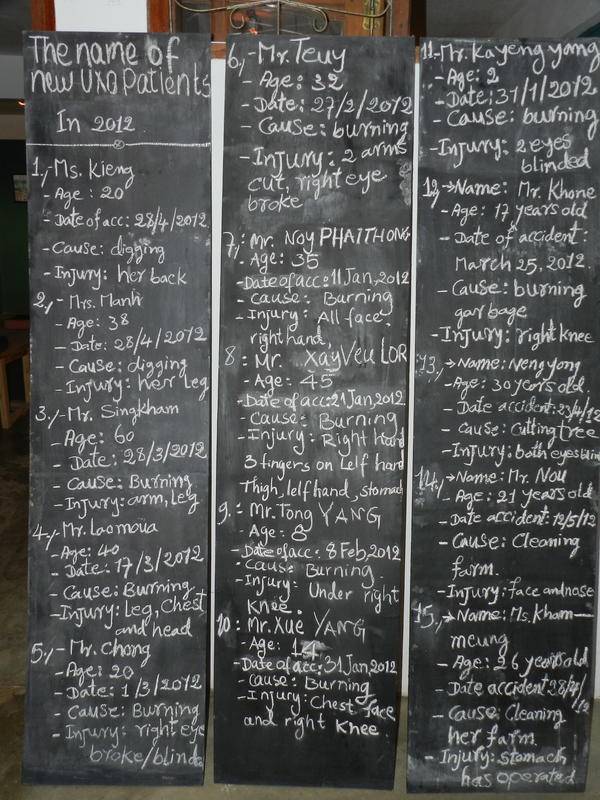 The name of
new UXO Patients
In 2012
1,- Ms. Kieng
- Age: 20
- Date of acc: 28/4/2012
- Cause: digging
- Injury: her back
2,- Mrs. Manh
- Age: 38
- Date: 28/4/2012
- Cause: digging
- Injury: her Leg
3,- Mr. Singkham
- Age: 60
- Date: 28/3/2012
- Cause: Burning
- Injury: arm, Leg
4,- Mr. Laomoua
- Age: 40
- Date: 17/3/2012
- Cause: Burning
- Injury: Leg, Chest
and head
5,- Mr. Chong
- Age: 20
- Date: 1/3/2012
- Cause: Burning
- Injury: right eye
broke/blind
6,- Mr. Teuy
- Age: 32
- Date: 27/2/2012
- Cause: burning
- Injury: 2 arms
cut, right eye
broke
7,: Mr. Noy PHAITHONG
- Age: 35
- Date of acc: 11 Jan, 2012
- cause: Burning
- Injury: All face,
right hand,
8: Mr. XayVeu LOR
- Age: 45
- Date of acc: 21 Jan, 2012
- Cause: Burning
- Injury: Right hand
3 fingers on Lelf hand
Thigh, lelf hand, stomach
9: Mr. Tong YANG
- Age: 8
- Date of acc: 8 Feb, 2012
- Cause: Burning
- Injury: Under right
Knee.
10: Mr. Xue YANG
- Age: 14
- Date of acc: 31 Jan, 2012
- cause: Burning
- Injury: Chest face
and right Knee.
11- Mr. Kayeng yang
- Age: 2
- Date: 31/1/2012
- Cause: burning
- Injury: 2 eyes
blinded
12, → Name: Mr. Khone
- Age: 17 years old
- Date of accident:
March 25, 2012.
- Cause: burning
garbage
- Injury: right knee
13, → Name: Neng yong
- Age: 30 years old
- Date accident: 23/4/12
- Cause: Cutting tree
- Injury: both eyes blind
14, → Name: Mr. Nou
- Age: 21 years old
- Date accident: 12/5/12
- Cause: Cleaning
farm.
- Injury: face and nose
15, → Name: Ms. Kham-
meung
- Age: 26 years old
- Date accident 28/4/
12
- Cause: Cleaning
her farm.
- Injury: stomach
has operated